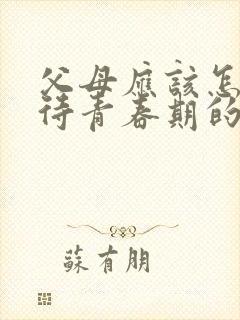 父母應該怎
待青春期的
蘇有朋